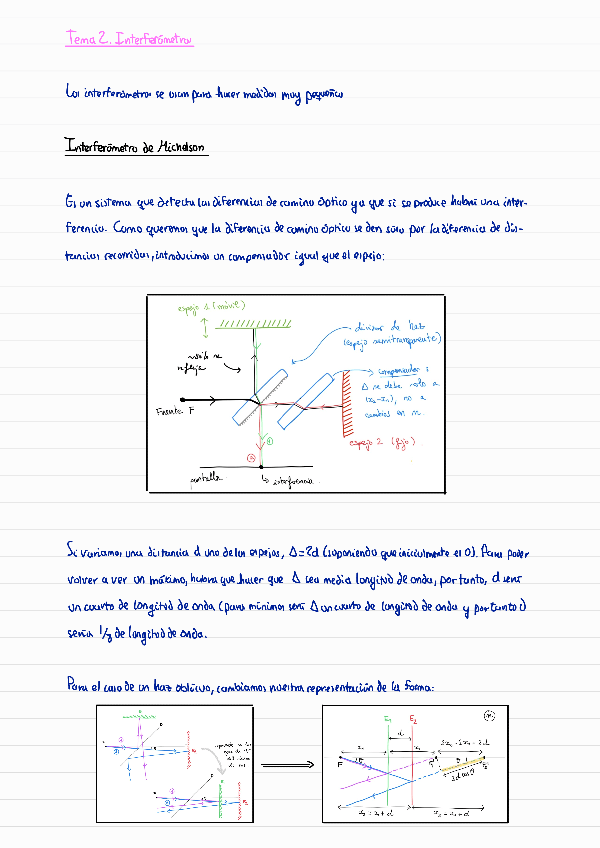 Tema 2. Interferómetros
Los interferómetros se usan para hacer medidas muy pequeñas
Interferómetro de Michelson
Es un sistema que detecta las diferencias de camino óptico ya que si se produce habrá una inter-
ferencia. Como queremos que la diferencia de camino óptico se den solo por la diferencia de dis-
tancias recorridas, introducimos un compensador igual que el espejo:
espejo 1 (móvil)
divisor de haz
(espejo semitransparente)
mitad se
refleja
compensador:
Δ se debe solo a
(x2-x1), no a
cambios en n.
Fuente F
espejo 2 (fijo)
pantalla
interferencia.
Si variamos una distancia d uno de los espejos, Δ=2d (suponiendo que inicialmente es 0). Para poder
volver a ver un máximo, habrá que hacer que Δ sea media longitud de onda, por tanto, d será
un cuarto de longitud de onda (para mínimos será Δ un cuarto de longitud de onda y por tanto d
sería 1/8 de longitud de onda.
Para el caso de un haz oblicuo, cambiamos nuestra representación de la forma:
E1 E2
d
F
2d cos θ